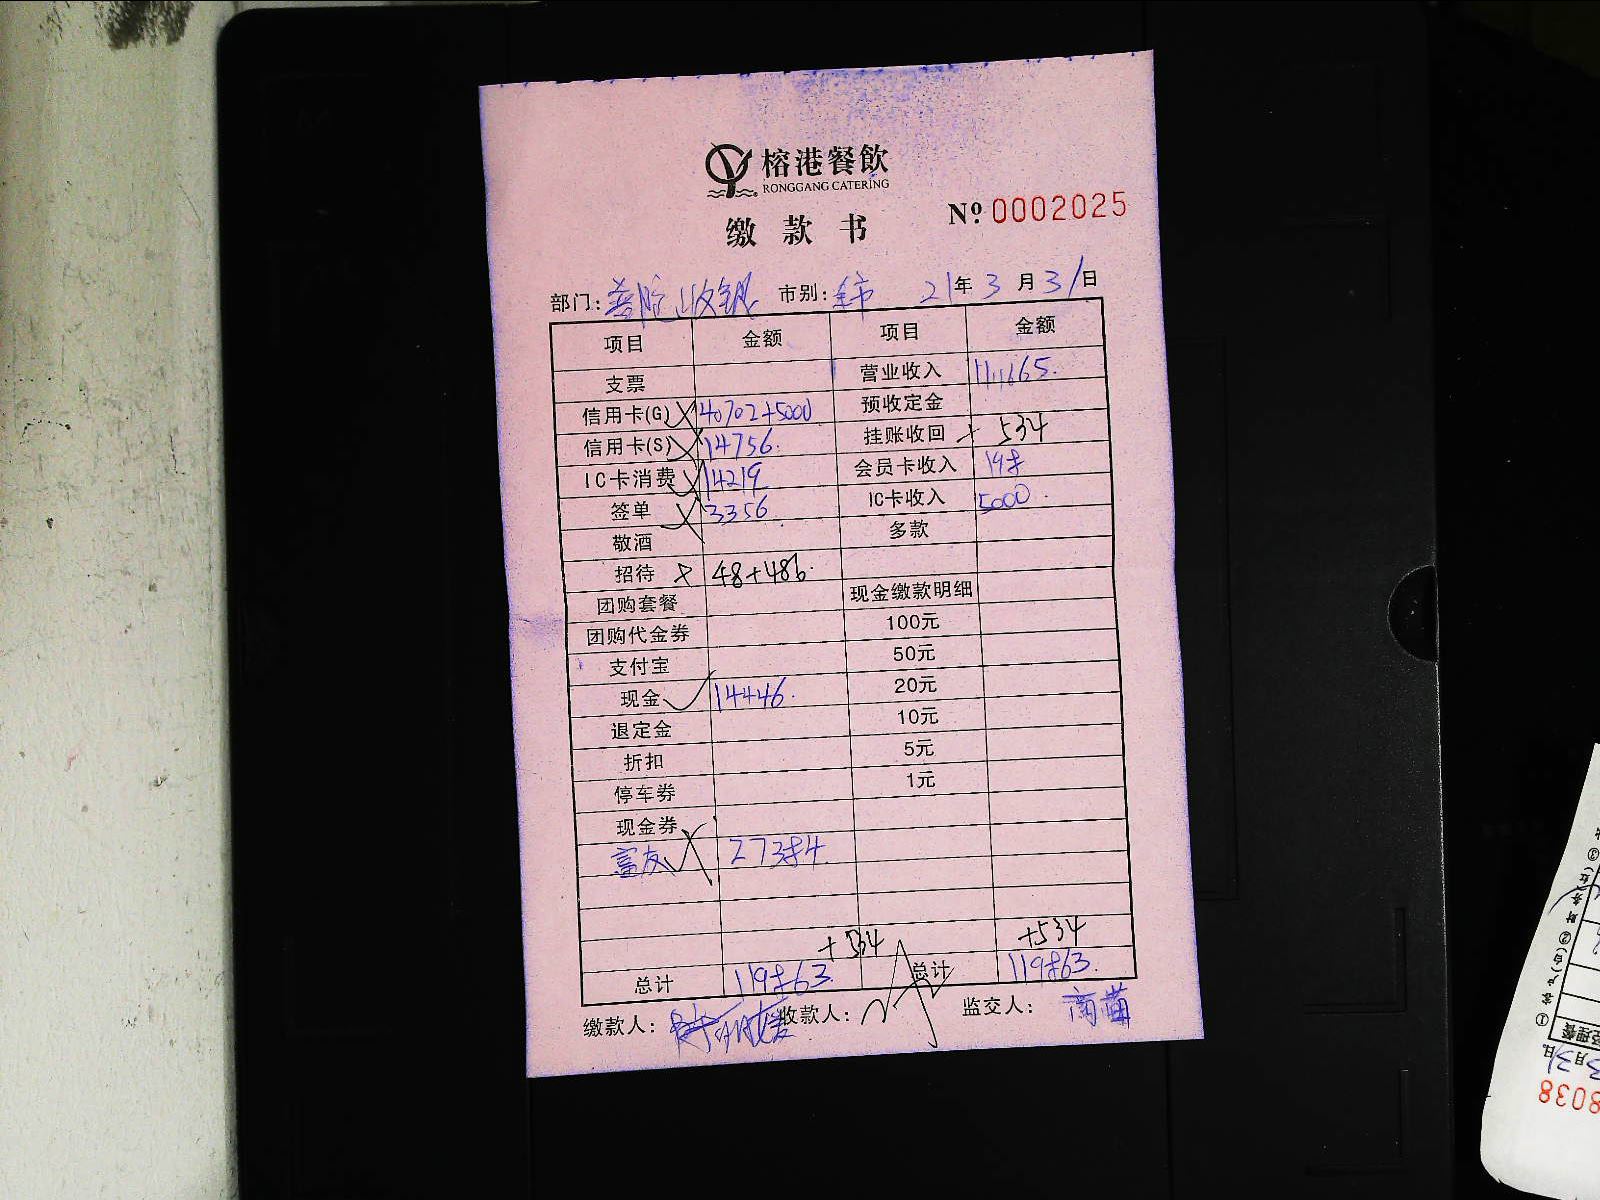 榕港餐飲
RONGGANG CATERING
缴款书
№ 0002025
部门: 普陀收银 市别: 全市 21年 3月 31日
项目 金额 项目 金额
支票 营业收入 114665.
信用卡(G) 40702+5000 预收定金
信用卡(S) 14756. 挂账收回 + 534
IC卡消费 14219 会员卡收入 198
签单 3356 IC卡收入 5000.
敬酒 多款
招待 48+486.
团购套餐 现金缴款明细
团购代金券 100元
支付宝 50元
现金 14446. 20元
退定金 10元
折扣 5元
停车券 1元
现金券
富友 27384.
+534 +534
总计 119863. 总计 119863.
缴款人: 收款人: 监交人:
8038